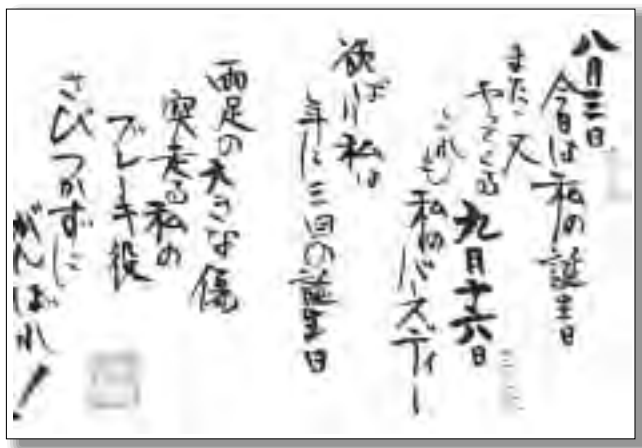 八月三日
今日は私の誕生日
また又
やってくる九月十六日
これも私のバースディー
欲ばり私は
年に三回の誕生日
両足の大きな傷
突走る私の
ブレーキ役
さびつかずに
がんばれ！